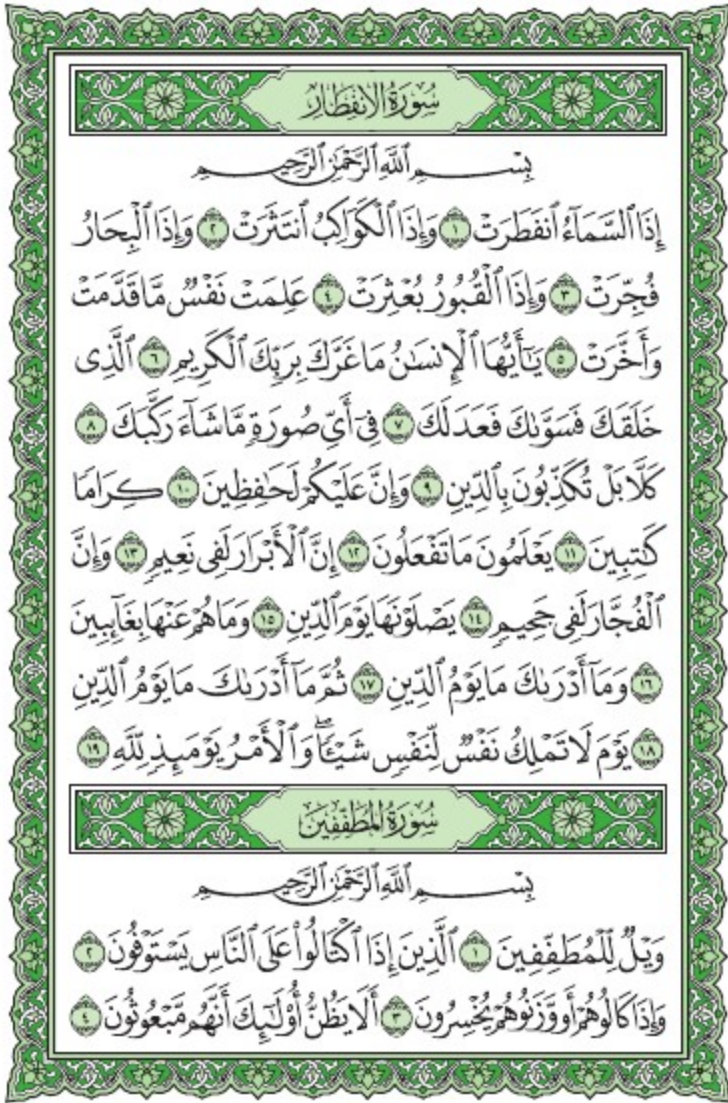 سُورَةُ الانفِطَارِ
بِسۡمِ ٱللَّهِ ٱلرَّحۡمَٰنِ ٱلرَّحِيمِ
إِذَا ٱلسَّمَآءُ ٱنفَطَرَتۡ ١ وَإِذَا ٱلۡكَوَاكِبُ ٱنتَثَرَتۡ ٢ وَإِذَا ٱلۡبِحَارُ
فُجِّرَتۡ ٣ وَإِذَا ٱلۡقُبُورُ بُعۡثِرَتۡ ٤ عَلِمَتۡ نَفۡسٞ مَّا قَدَّمَتۡ
وَأَخَّرَتۡ ٥ يَٰٓأَيُّهَا ٱلۡإِنسَٰنُ مَا غَرَّكَ بِرَبِّكَ ٱلۡكَرِيمِ ٦ ٱلَّذِي
خَلَقَكَ فَسَوَّىٰكَ فَعَدَلَكَ ٧ فِيٓ أَيِّ صُورَةٖ مَّا شَآءَ رَكَّبَكَ ٨
كَلَّا بَلۡ تُكَذِّبُونَ بِٱلدِّينِ ٩ وَإِنَّ عَلَيۡكُمۡ لَحَٰفِظِينَ ١٠ كِرَامٗا
كَٰتِبِينَ ١١ يَعۡلَمُونَ مَا تَفۡعَلُونَ ١٢ إِنَّ ٱلۡأَبۡرَارَ لَفِي نَعِيمٖ ١٣ وَإِنَّ
ٱلۡفُجَّارَ لَفِي جَحِيمٖ ١٤ يَصۡلَوۡنَهَا يَوۡمَ ٱلدِّينِ ١٥ وَمَا هُمۡ عَنۡهَا بِغَآئِبِينَ
١٦ وَمَآ أَدۡرَىٰكَ مَا يَوۡمُ ٱلدِّينِ ١٧ ثُمَّ مَآ أَدۡرَىٰكَ مَا يَوۡمُ ٱلدِّينِ
١٨ يَوۡمَ لَا تَمۡلِكُ نَفۡسٞ لِّنَفۡسٖ شَيۡـٔٗاۖ وَٱلۡأَمۡرُ يَوۡمَئِذٖ لِّلَّهِ ١٩
سُورَةُ المُطَفِّفِينَ
بِسۡمِ ٱللَّهِ ٱلرَّحۡمَٰنِ ٱلرَّحِيمِ
وَيۡلٞ لِّلۡمُطَفِّفِينَ ١ ٱلَّذِينَ إِذَا ٱكۡتَالُواْ عَلَى ٱلنَّاسِ يَسۡتَوۡفُونَ ٢
وَإِذَا كَالُوهُمۡ أَو وَّزَنُوهُمۡ يُخۡسِرُونَ ٣ أَلَا يَظُنُّ أُوْلَٰٓئِكَ أَنَّهُم مَّبۡعُوثُونَ ٤